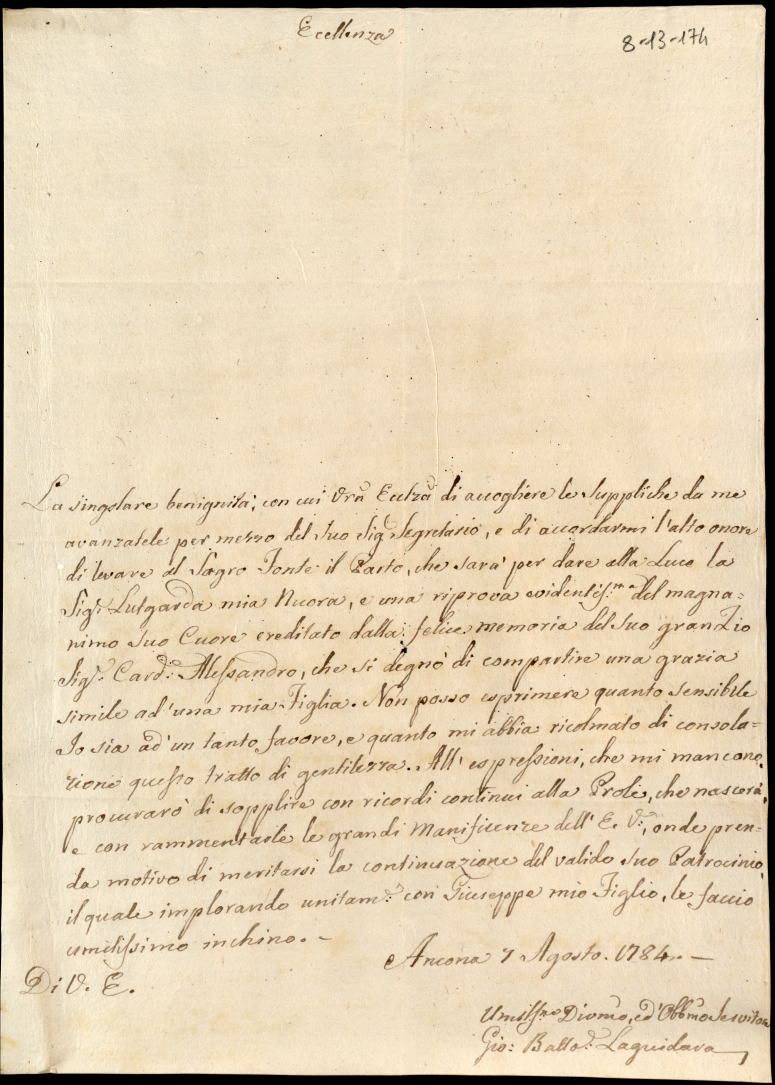 Ecellenza
8-13-174
La singolare benignità, con cui Vrã Ecclzã di accogliere le suppliche da me
avanzatele per mezzo del suo Sig.e Segretario, e di accordarmi l'alto onore
di levare al Sagro Fonte il Parto, che sarà per dare alla Luce la
Sig.ra Lutgarda mia Nuora, e una riprova evidentiss.ma del magna=
nimo suo Cuore ereditato dalla felice memoria del suo gran Zio
Sig.r Card.e Alessandro, che si degnò di compartire una grazia
simile ad'una mia Figlia. Non posso esprimere quanto sensibile
Io sia ad'un tanto favore, e quanto mi abbia ricolmato di consola=
zione questo tratto di gentilezza. All'espressioni, che mi mancono,
procurarò di sopplire con ricordi continui alla Prole, che nascerà,
e con rammentarle le grandi Manificenze dell'E. V.a, onde pren=
da motivo di meritarsi la continuazione del valido suo Patrocinio,
il quale implorando unitam.e con Giuseppe mio Figlio, le faccio
umilissimo inchino. -
Ancona 7 Agosto. 1784. -
Di V. E.
Umilss.mo Divmõ, ed'Obbmõ Servitore
Gio: Batto.